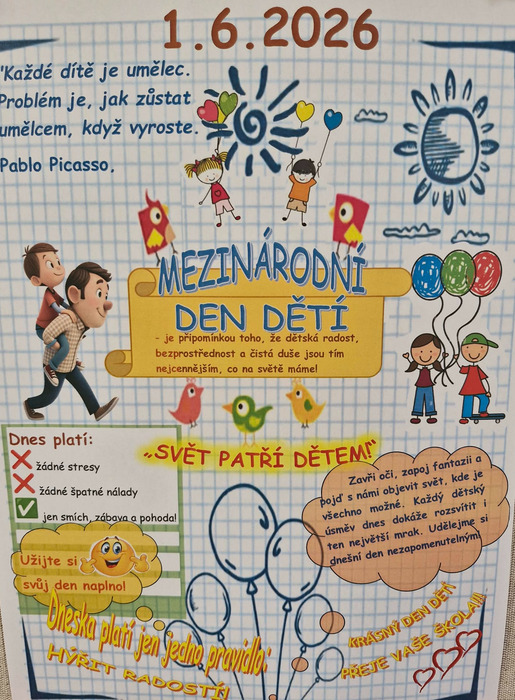 1.6.2026
"Každé dítě je umělec.
Problém je, jak zůstat
umělcem, když vyroste.
Pablo Picasso.
MEZINÁRODNÍ
DEN DĚTÍ
- je připomínkou toho, že dětská radost,
bezprostřednost a čistá duše jsou tím
nejcennějším, co na světě máme!
Dnes platí:
žádné stresy
žádné špatné nálady
jen smích, zábava a pohoda!
„SVĚT PATŘÍ DĚTEM!“
Zavři oči, zapoj fantazii a
pojď s námi objevit svět, kde je
všechno možné. Každý dětský
úsměv dnes dokáže rozsvítit i
ten největší mrak. Udělejme si
dnešní den nezapomenutelným
Užijte si
svůj den naplno!
Dneska platí jen jedno pravidlo:
HÝŘIT RADOSTÍ!
KRÁSNÝ DEN DĚTÍ
PŘEJE VAŠE ŠKOLA!!!